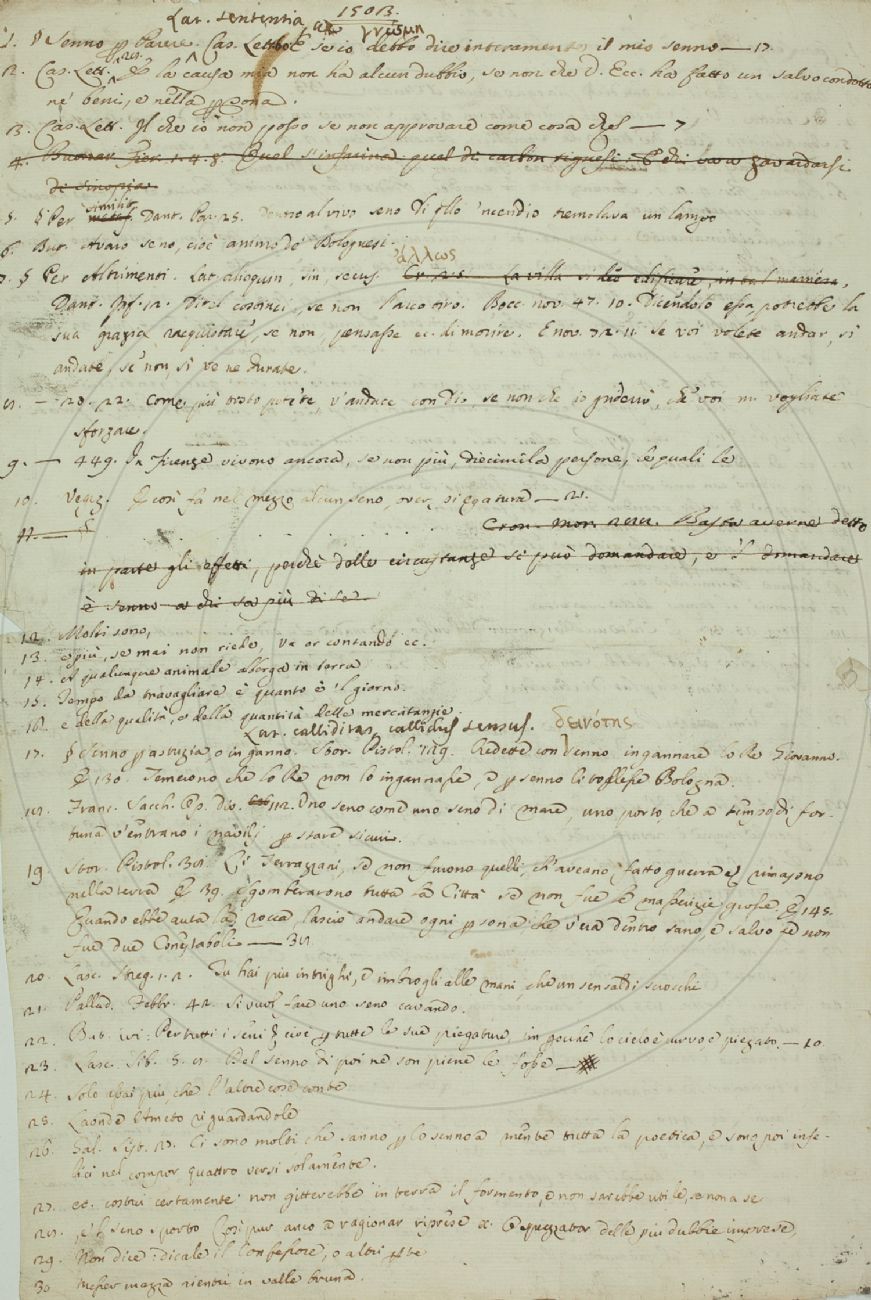 Lat. sententia
1. § Senno per Parere. Cas. Lett. E se io debbo dire interamente il mio senno — 17.
2. Cas. Lett. E la causa mia non ha alcun dubbio, se non che V. Ecc. ha fatto un salvo condotto
ne' beni, e nella persona.
3. Cas. Lett. Il che io non posso se non approvare come cosa che — 7
4. Buonar. Fier. 1. 4. 8. Qual s'infarina, qual di carbon
di sinopia.
5. § Per similit. Dant. Par. 25. Dentro al vivo seno Di
6. But. Avaro seno, cioè animo de' Bolognesi.
ἄλλως
7. § Per Altrimenti. Lat. alioquin, sin, secus. La villa si dee edificare, in tal maniera,
Dant. Inf. 12. Ditel costinci, se non l'arco tiro. Bocc. nov. 47. 10. Dicendolo essa, potrebbe la
sua grazia racquistare, se non, pensasse ec. di morire. E nov. 72. 11. Se voi volete andar, sì
andate, se non, sì ve ne durate.
Come più tosto potete, v'andate con Dio, se non che io griderrò, che voi mi vogliate
sforzare.
9. — 449. In Firenze vivono ancora, se non più, diecimila persone, le quali le
10. Veget. E così fa nel mezzo alcun seno, over piegatura — 2.
11. — § Cron. Mor. Basta averne detto
in parte gli effetti, perchè delle circustanze si può domandare, e 'l domandare
è senno a chi sa più di se.
12. Molti sono,
13. e più, se mai non riede, va or contando ec.
14. A qualunque animale alberga in terra
15. Tempo da travagliare è quanto è 'l giorno.
16. e della qualità, e della quantità delle mercatanzie.
Lat. calliditas, callidus sensus. δεινότης
17. § Senno per astuzia, o inganno. Stor. Pistol. Credette con senno ingannare lo Re Giovanni.
E 130. Temerono che lo Re non lo ingannasse, e per senno li togliesse Bologna.
Franc. Sacch. Op. div. Uno seno come uno seno di mare, uno porto che a tempo di for-
tuna v'entrano i navilj per stare sicuri.
19. Stor. Pistol. Li Terrazzani, se non furono quelli, ch'aveano fatto guerra rimasono
nella terra E 39. sgomberarono tutta la Città se non fue le masserizie grosse E 148.
Quando ebbe auta la rocca, lasciò andare ogni persona che v'era dentro sano, e salvo se non
fue due Conestaboli —
20. Lasc. Streg. 1. 2. Tu hai più intrighi, e imbrogli alle mani, che un sensal di scrocchi
21. Pallad. Febbr. 42. Si vuol fare uno seno cavando.
22. But. ivi: Per tutti i seni cioè per tutte le sue piegature, imperocchè lo cielo è curvo e piegato. — 10
23. Lasc. Sib. 5. Del senno di poi ne son piene le fosse —
24. Solo assai più, che l'altre cose conte
25. Laonde Ameto riguardandole
26. Gal. Sist. Ci sono molti che sanno per lo senno a mente tutta la poetica, e sono poi infe-
lici nel compor quattro versi solamente.
27. ec. costui certamente non gitterebbe in terra il formento, e non sarebbe utile, se non a se
e 'l seno sporto Così pur anco a ragionar riprese Sprezzator delle più dubbie imprese
29. Non dice: dicale il Confessore, o altri per te
30. Messer mazza rientri in valle bruna.